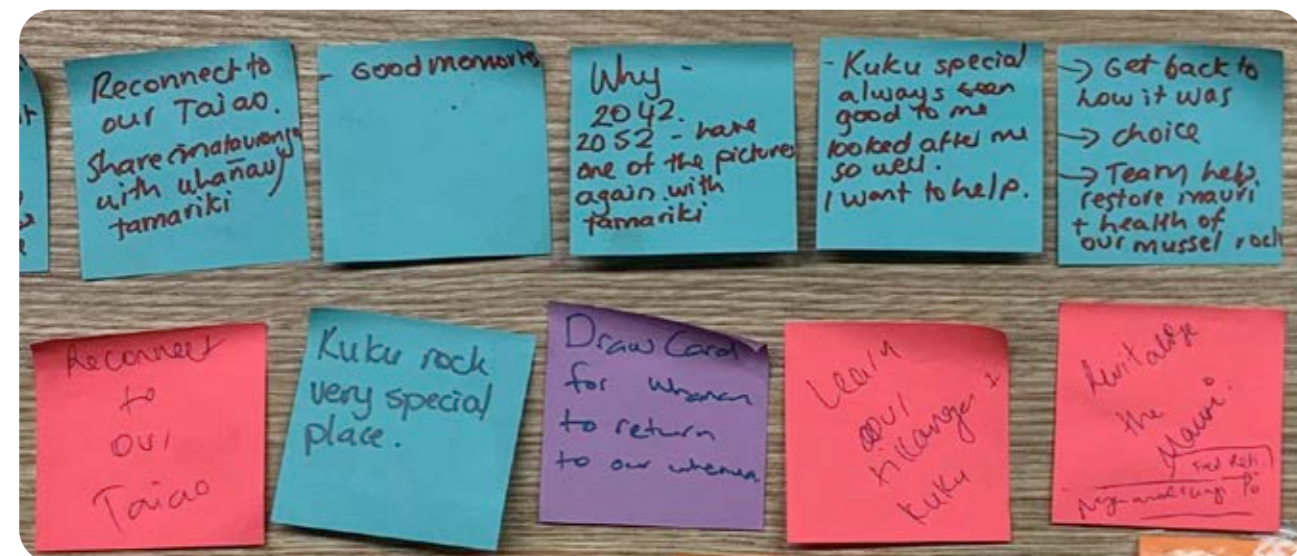 Reconnect to
our Taiao.
Share matauranga
with whanau
tamariki
- Good memories
Why -
2042.
2052 - have
one of the pictures
again with
tamariki
- Kuku special
always been
good to me
looked after me
so well.
I want to help.
→ Get back to
how it was
→ choice
→ Team help
restore mauri
+ health of
our mussel rock
Reconnect
to
our
Taiao
Kuku rock
very special
place.
Draw Card
for whanau
to return
to our whenua
Learn
our
tikanga
kuku
Revitalize
the
Mauri.